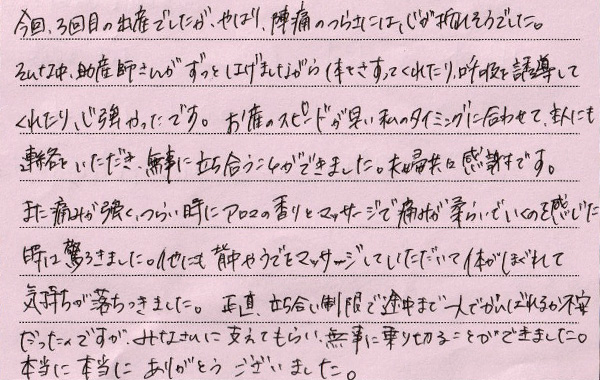 今回、3回目の出産でしたが、やはり、陣痛のつらさには、心が折れそうでした。
そんな中、助産師さんがずっとはげましながら体をさすってくれたり、呼吸を誘導して
くれたり、心強かったです。お産のスピードが早い私のタイミングに合わせて、主人にも
連絡をいただき、無事に立ち合うことができました。夫婦共に感謝です。
また痛みが強く、つらい時にアロマの香りとマッサージで痛みが柔らいでいくのを感じた
時は驚ろきました。他にも背中やうでをマッサージしていただいて体がほぐれて
気持ちが落ちつきました。正直、立ち合い制限で途中まで一人でがんばれるか不安
だったんですが、みなさんに支えてもらい、無事に乗り切ることができました。
本当に本当にありがとうございました。